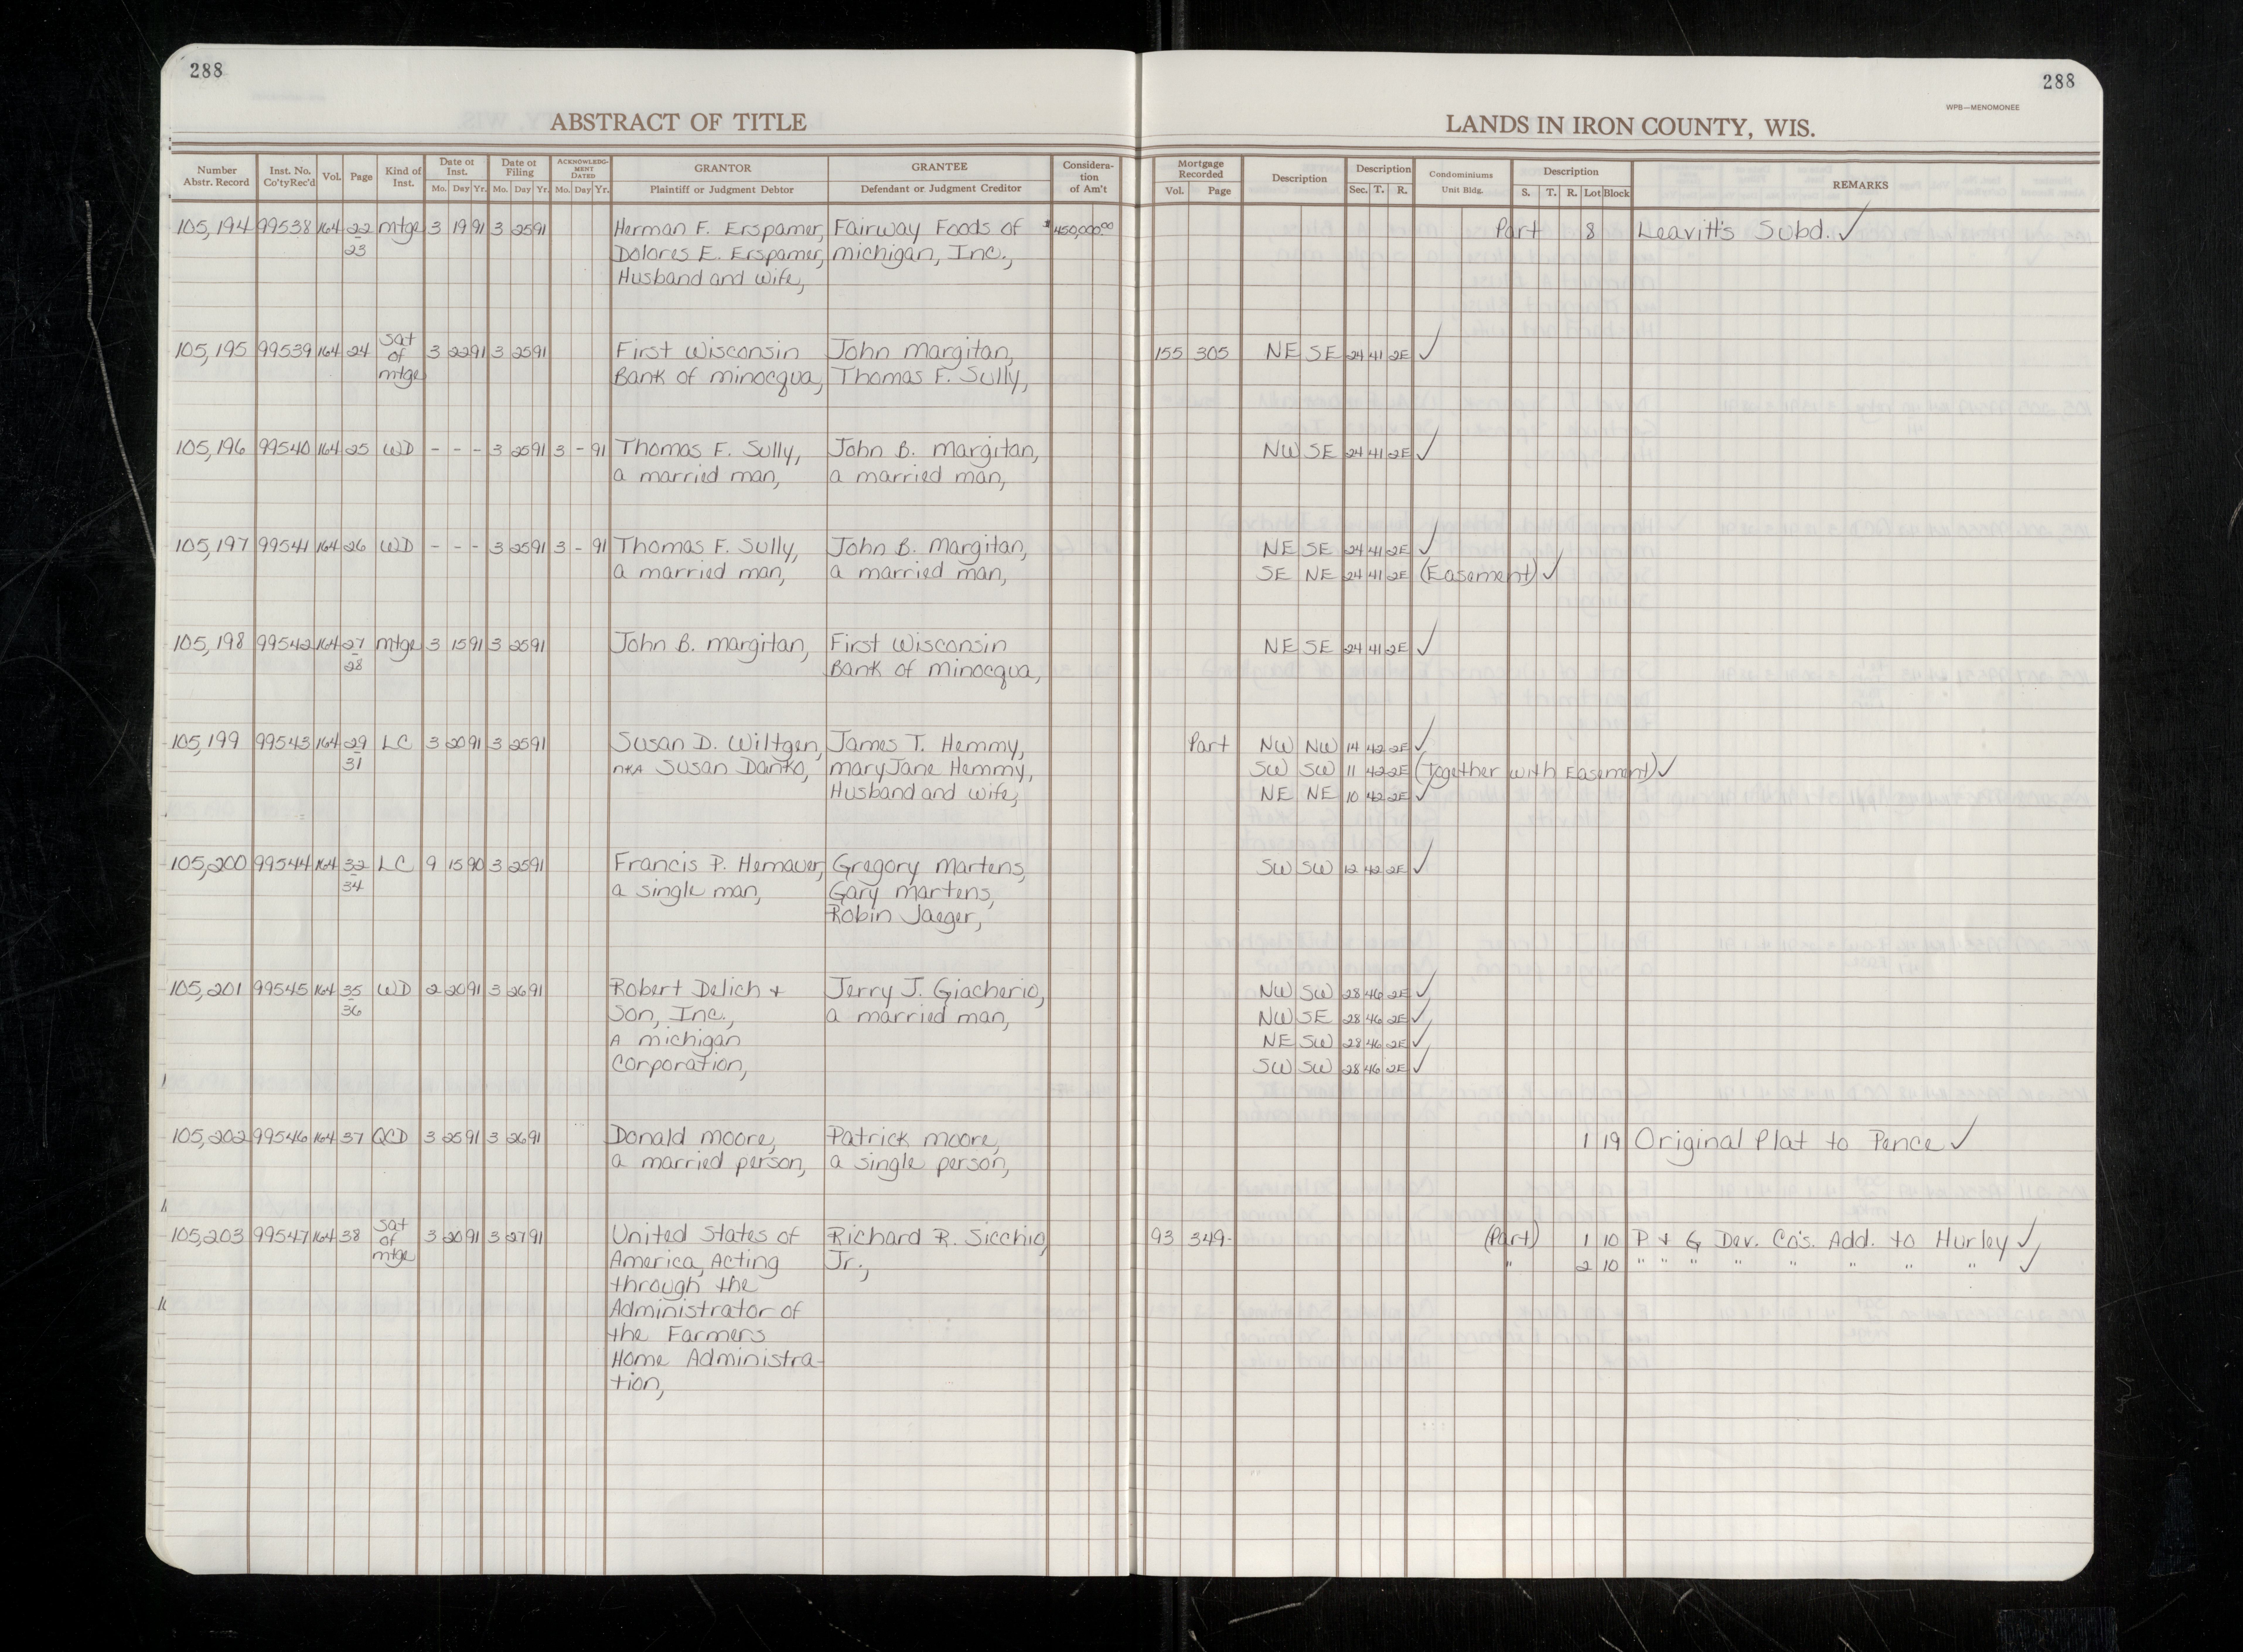 288
288
WPB—MENOMONEE
ABSTRACT OF TITLE
LANDS IN IRON COUNTY, WIS.
Number Abstr. Record | Inst. No. Co'ty Rec'd | Vol. | Page | Kind of Inst. | Date of Inst. Mo. Day Yr. | Date of Filing Mo. Day Yr. | ACKNOWLEDGMENT DATED Mo. Day Yr. | GRANTOR Plaintiff or Judgment Debtor | GRANTEE Defendant or Judgment Creditor | Consideration of Am't | Mortgage Recorded Vol. Page | Description | Description Sec. T. R. | Condominiums Unit Bldg. | Description S. T. R. Lot Block | REMARKS
105,194 99538 164 22 mtge 3 19 91 3 25 91 Herman F. Erspamer, Fairway Foods of $450,000.00 Part 8 Leavitt's Subd. ✓
23 Dolores E. Erspamer, michigan, Inc.,
Husband and Wife,
105,195 99539 164 24 Sat of mtge 3 22 91 3 25 91 First Wisconsin John Margitan, 155 305 NE SE 24 41 2E ✓
Bank of minocqua, Thomas F. Sully,
105,196 99540 164 25 WD - - - 3 25 91 3 - 91 Thomas F. Sully, John B. Margitan, NW SE 24 41 2E ✓
a married man, a married man,
105,197 99541 164 26 WD - - - 3 25 91 3 - 91 Thomas F. Sully, John B. Margitan, NE SE 24 41 2E ✓
a married man, a married man, SE NE 24 41 2E (Easement) ✓
105,198 99542 164 27 mtge 3 15 91 3 25 91 John B. margitan, First Wisconsin NE SE 24 41 2E ✓
28 Bank of Minocqua,
105,199 99543 164 29 LC 3 20 91 3 25 91 Susan D. Wiltgen, James T. Hemmy, Part NW NW 14 42 2E ✓
31 nka Susan Danko, mary Jane Hemmy, SW SW 11 42 2E (Together with Easement) ✓
Husband and Wife, NE NE 10 42 2E ✓
105,200 99544 164 32 LC 9 15 90 3 25 91 Francis P. Hemauer, Gregory Martens, SW SW 12 42 2E ✓
34 a single man, Gary Martens,
Robin Jaeger,
105,201 99545 164 35 WD 2 20 91 3 26 91 Robert Delich + Jerry J. Giacherio, NW SW 28 46 2E ✓
36 Son, Inc., a married man, NW SE 28 46 2E ✓
A michigan NE SW 28 46 2E ✓
Corporation, SW SW 28 46 2E ✓
105,202 99546 164 37 QCD 3 25 91 3 26 91 Donald moore, Patrick moore, 1 19 Original Plat to Pence ✓
a married person, a single person,
105,203 99547 164 38 Sat of mtge 3 20 91 3 27 91 United States of Richard R. Sicchio, 93 349- (Part) 1 10 P + G Dev. Co's. Add. to Hurley ✓
America, Acting Jr., " 2 10 " " " " " " " " ✓
through the
Administrator of
the Farmers
Home Administra-
tion,